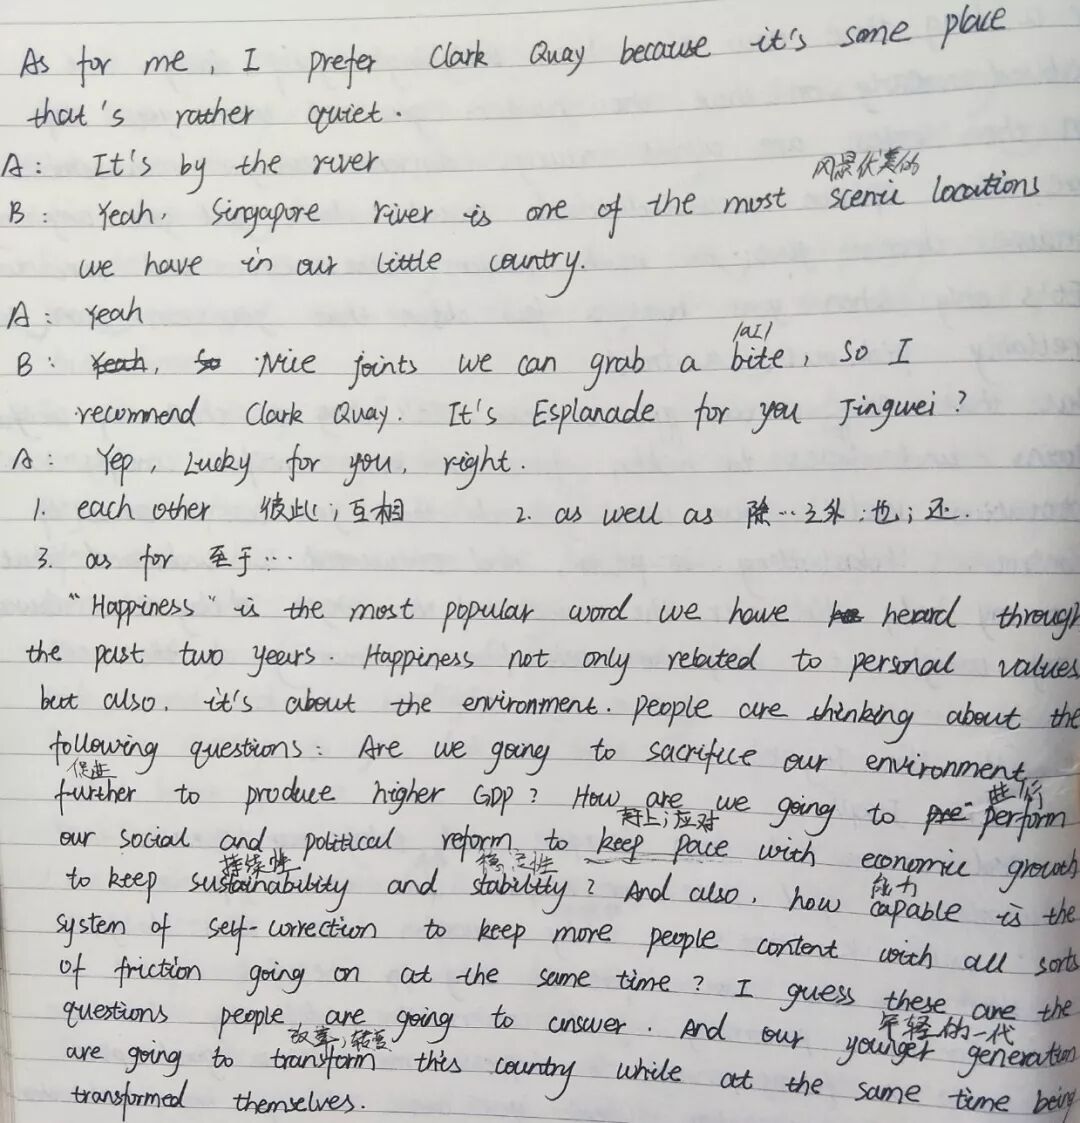 As for me, I prefer Clark Quay because it's some place
that's rather quiet.
A: It's by the river
风景优美的
B: Yeah. Singapore river is one of the most scenic locations
we have in our little country.
A: Yeah
/aI/
B: Yeah, So Nice joints we can grab a bite, so I
recommend Clark Quay. It's Esplanade for you Jingwei?
A: Yep, Lucky for you, right.
1. each other 彼此；互相 2. as well as 除…之外；也；还.
3. as for 至于…
"Happiness" is the most popular word we have heard through
the past two years. Happiness not only related to personal values
but also, it's about the environment. People are thinking about the
following questions: Are we going to sacrifice our environment
促进
further to produce higher GDP? How are we going to pre- perform
赶上；应对
our social and political reform to keep pace with economic growth
持续性 稳定性
to keep sustainability and stability? And also, how capable is the
能力
system of self-correction to keep more people content with all sorts
of friction going on at the same time? I guess these are the
questions people are going to answer. And our younger generation
改革；转变 年轻的一代
are going to transform this country while at the same time being
transformed themselves.